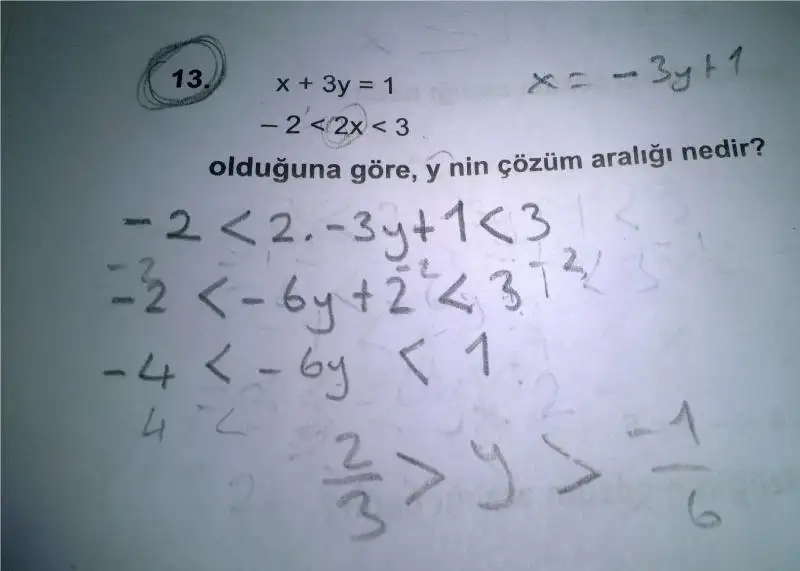 13. x + 3y = 1 x = - 3y + 1
– 2 < 2x < 3
olduğuna göre, y nin çözüm aralığı nedir?
- 2 < 2. - 3y + 1 < 3
-2 -2 -2
- 2 < - 6y + 2 < 3
- 4 < - 6y < 1
4 <
2/3 > y > -1/6